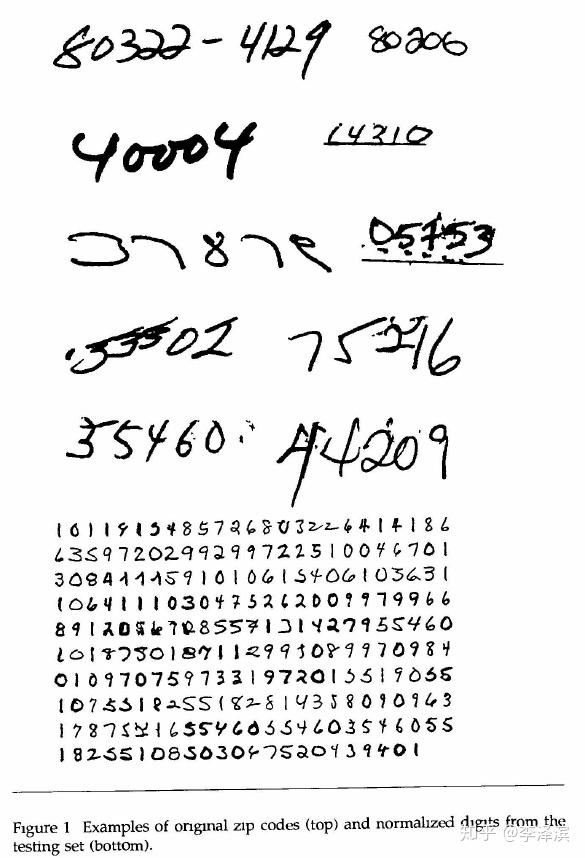 80322-4129 80206
40004 14310
37878 05753
33502 75216
35460 44209
1011915485726803226414186
6359720299299722510046701
3084111591010615406103631
1064111030475262009979966
8912056708557131427955460
1018730187112993089970984
0109707597331972015519055
1075518255182814358090963
1787521655460554603546055
18255108503047520439401
Figure 1 Examples of original zip codes (top) and normalized digits from the
testing set (bottom).
知乎 @李泽滨